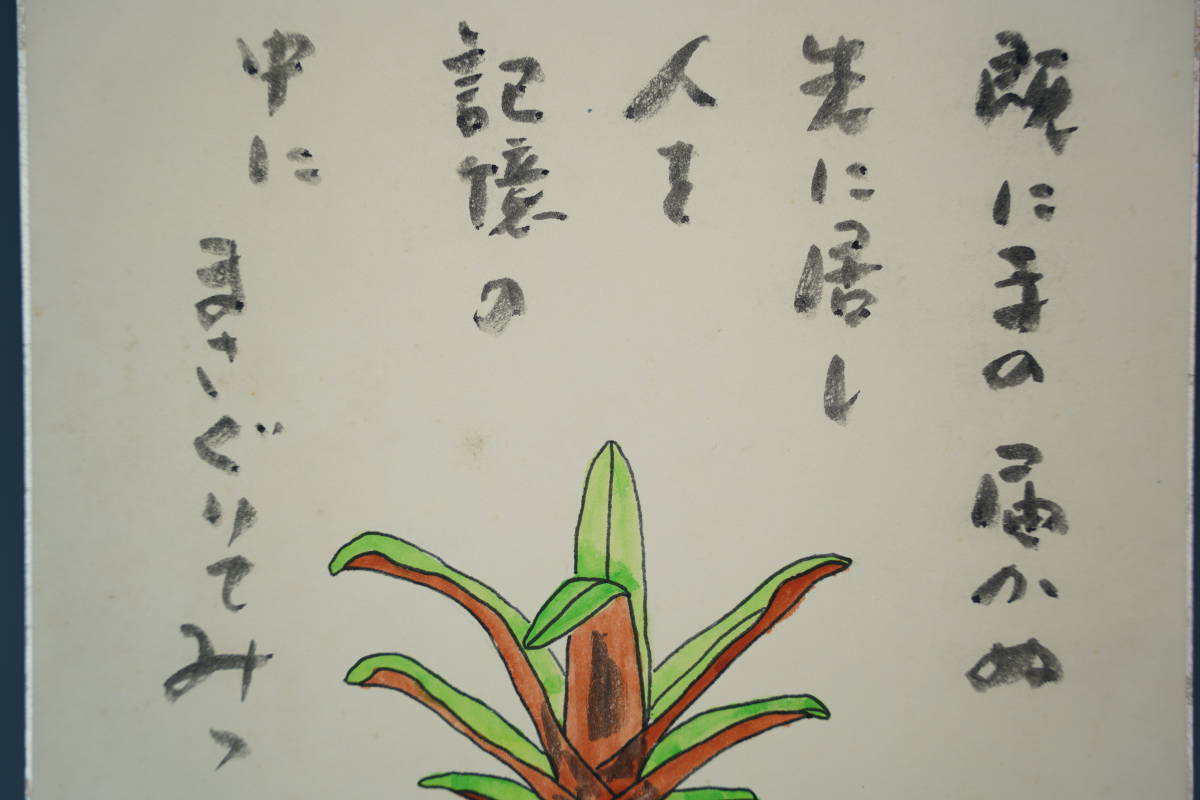 既に手の届かぬ
先に居し
人を
記憶の
中に
まさぐりてみつ